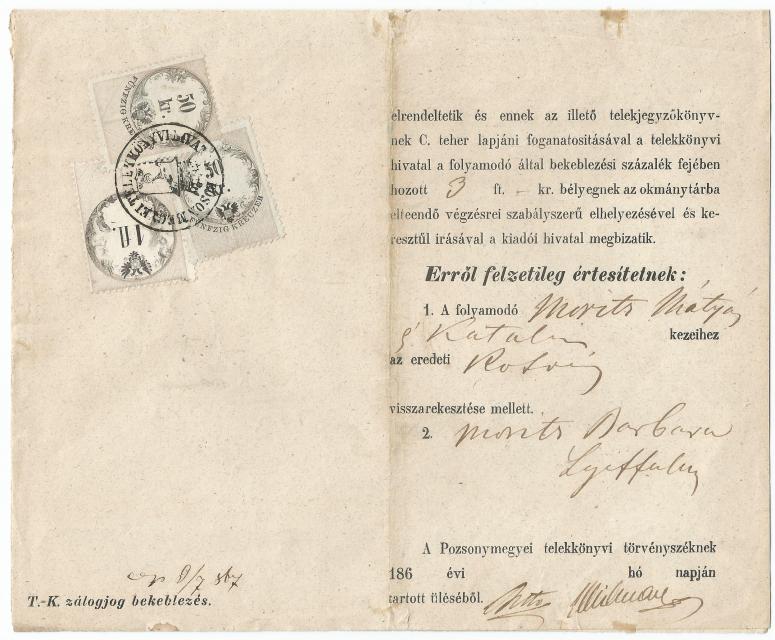 50
kr.
FÜNFZIG KREUZER
50
FÜNFZIG KREUZER
1 fl.
9/7 867
T.-K. zálogjog bekeblezés.
elrendeltetik és ennek az illető telekjegyzőkönyv-
nek C. teher lapjáni foganatositásával a telekkönyvi
hivatal a folyamodó által bekeblezési százalék fejében
hozott 3 ft. – kr. bélyegnek az okmánytárba
elteendő végzésrei szabályszerű elhelyezésével és ke-
resztűl irásával a kiadói hivatal megbizatik.
Erről felzetileg értesitelnek:
1. A folyamodó Morits Mátyás
é Katalin kezeihez
az eredeti
visszarekesztése mellett.
2. Morits Barbara
A Pozsonymegyei telekkönyvi törvényszéknek
186 évi hó napján
tartott üléséből.